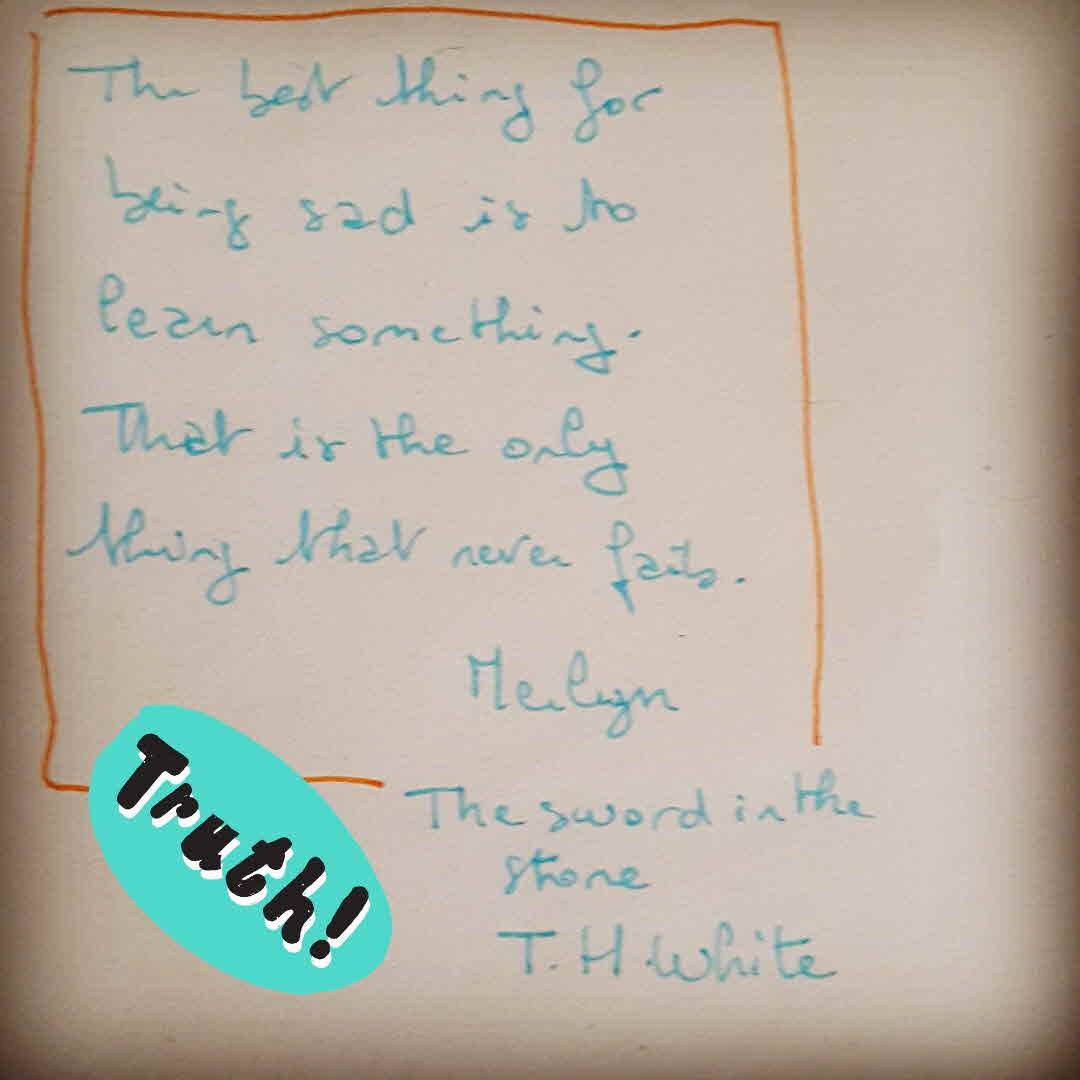 The best thing for
being sad is to
learn something.
That is the only
thing that never fails.
Merlyn
The sword in the
stone
T. H. White
Truth!